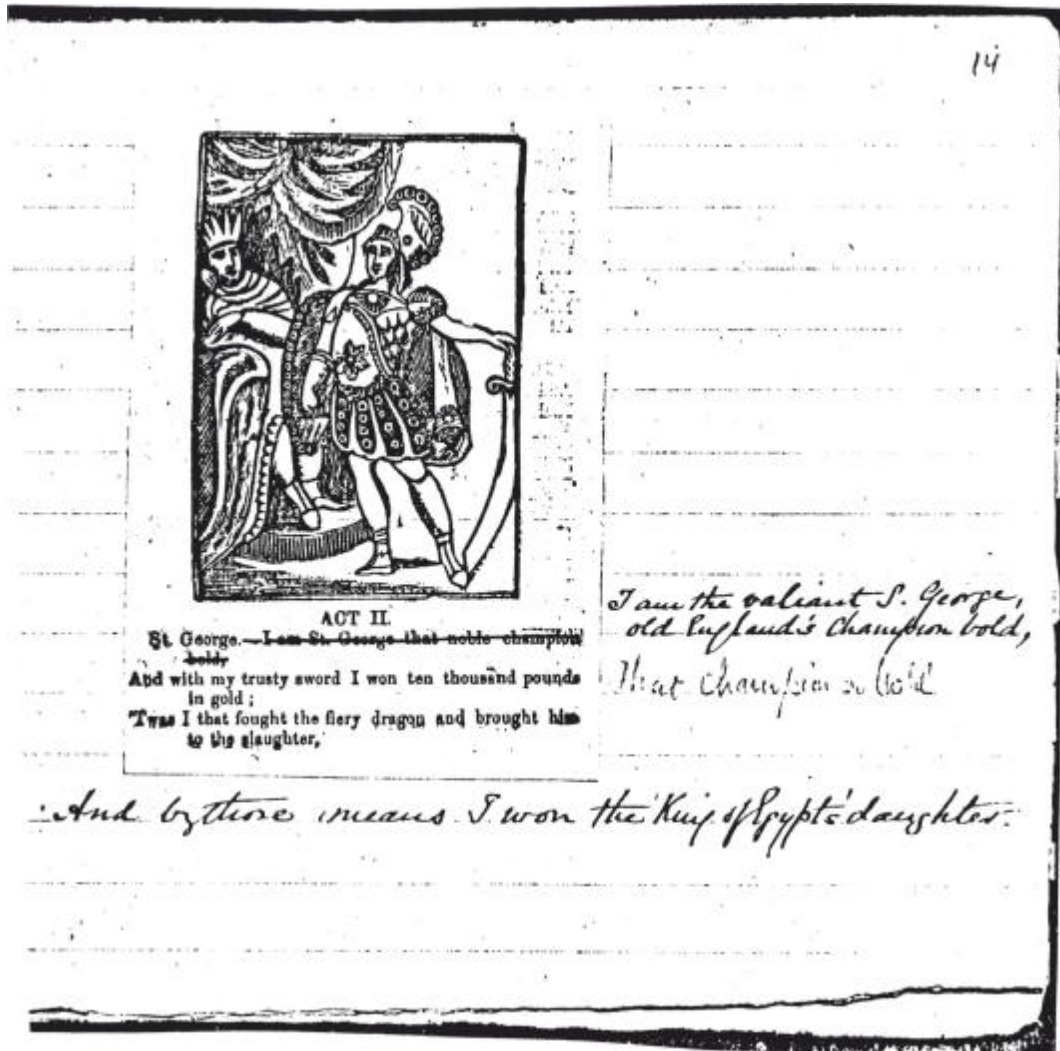 14
ACT II.
St. George.—I am St. George that noble champion
bold,
And with my trusty sword I won ten thousand pounds
in gold;
'Twas I that fought the fiery dragon and brought him
to the slaughter,
I am the valiant S. George,
old England's champion bold,
That champion bold
And by those means I won the King of Egypt's daughter.